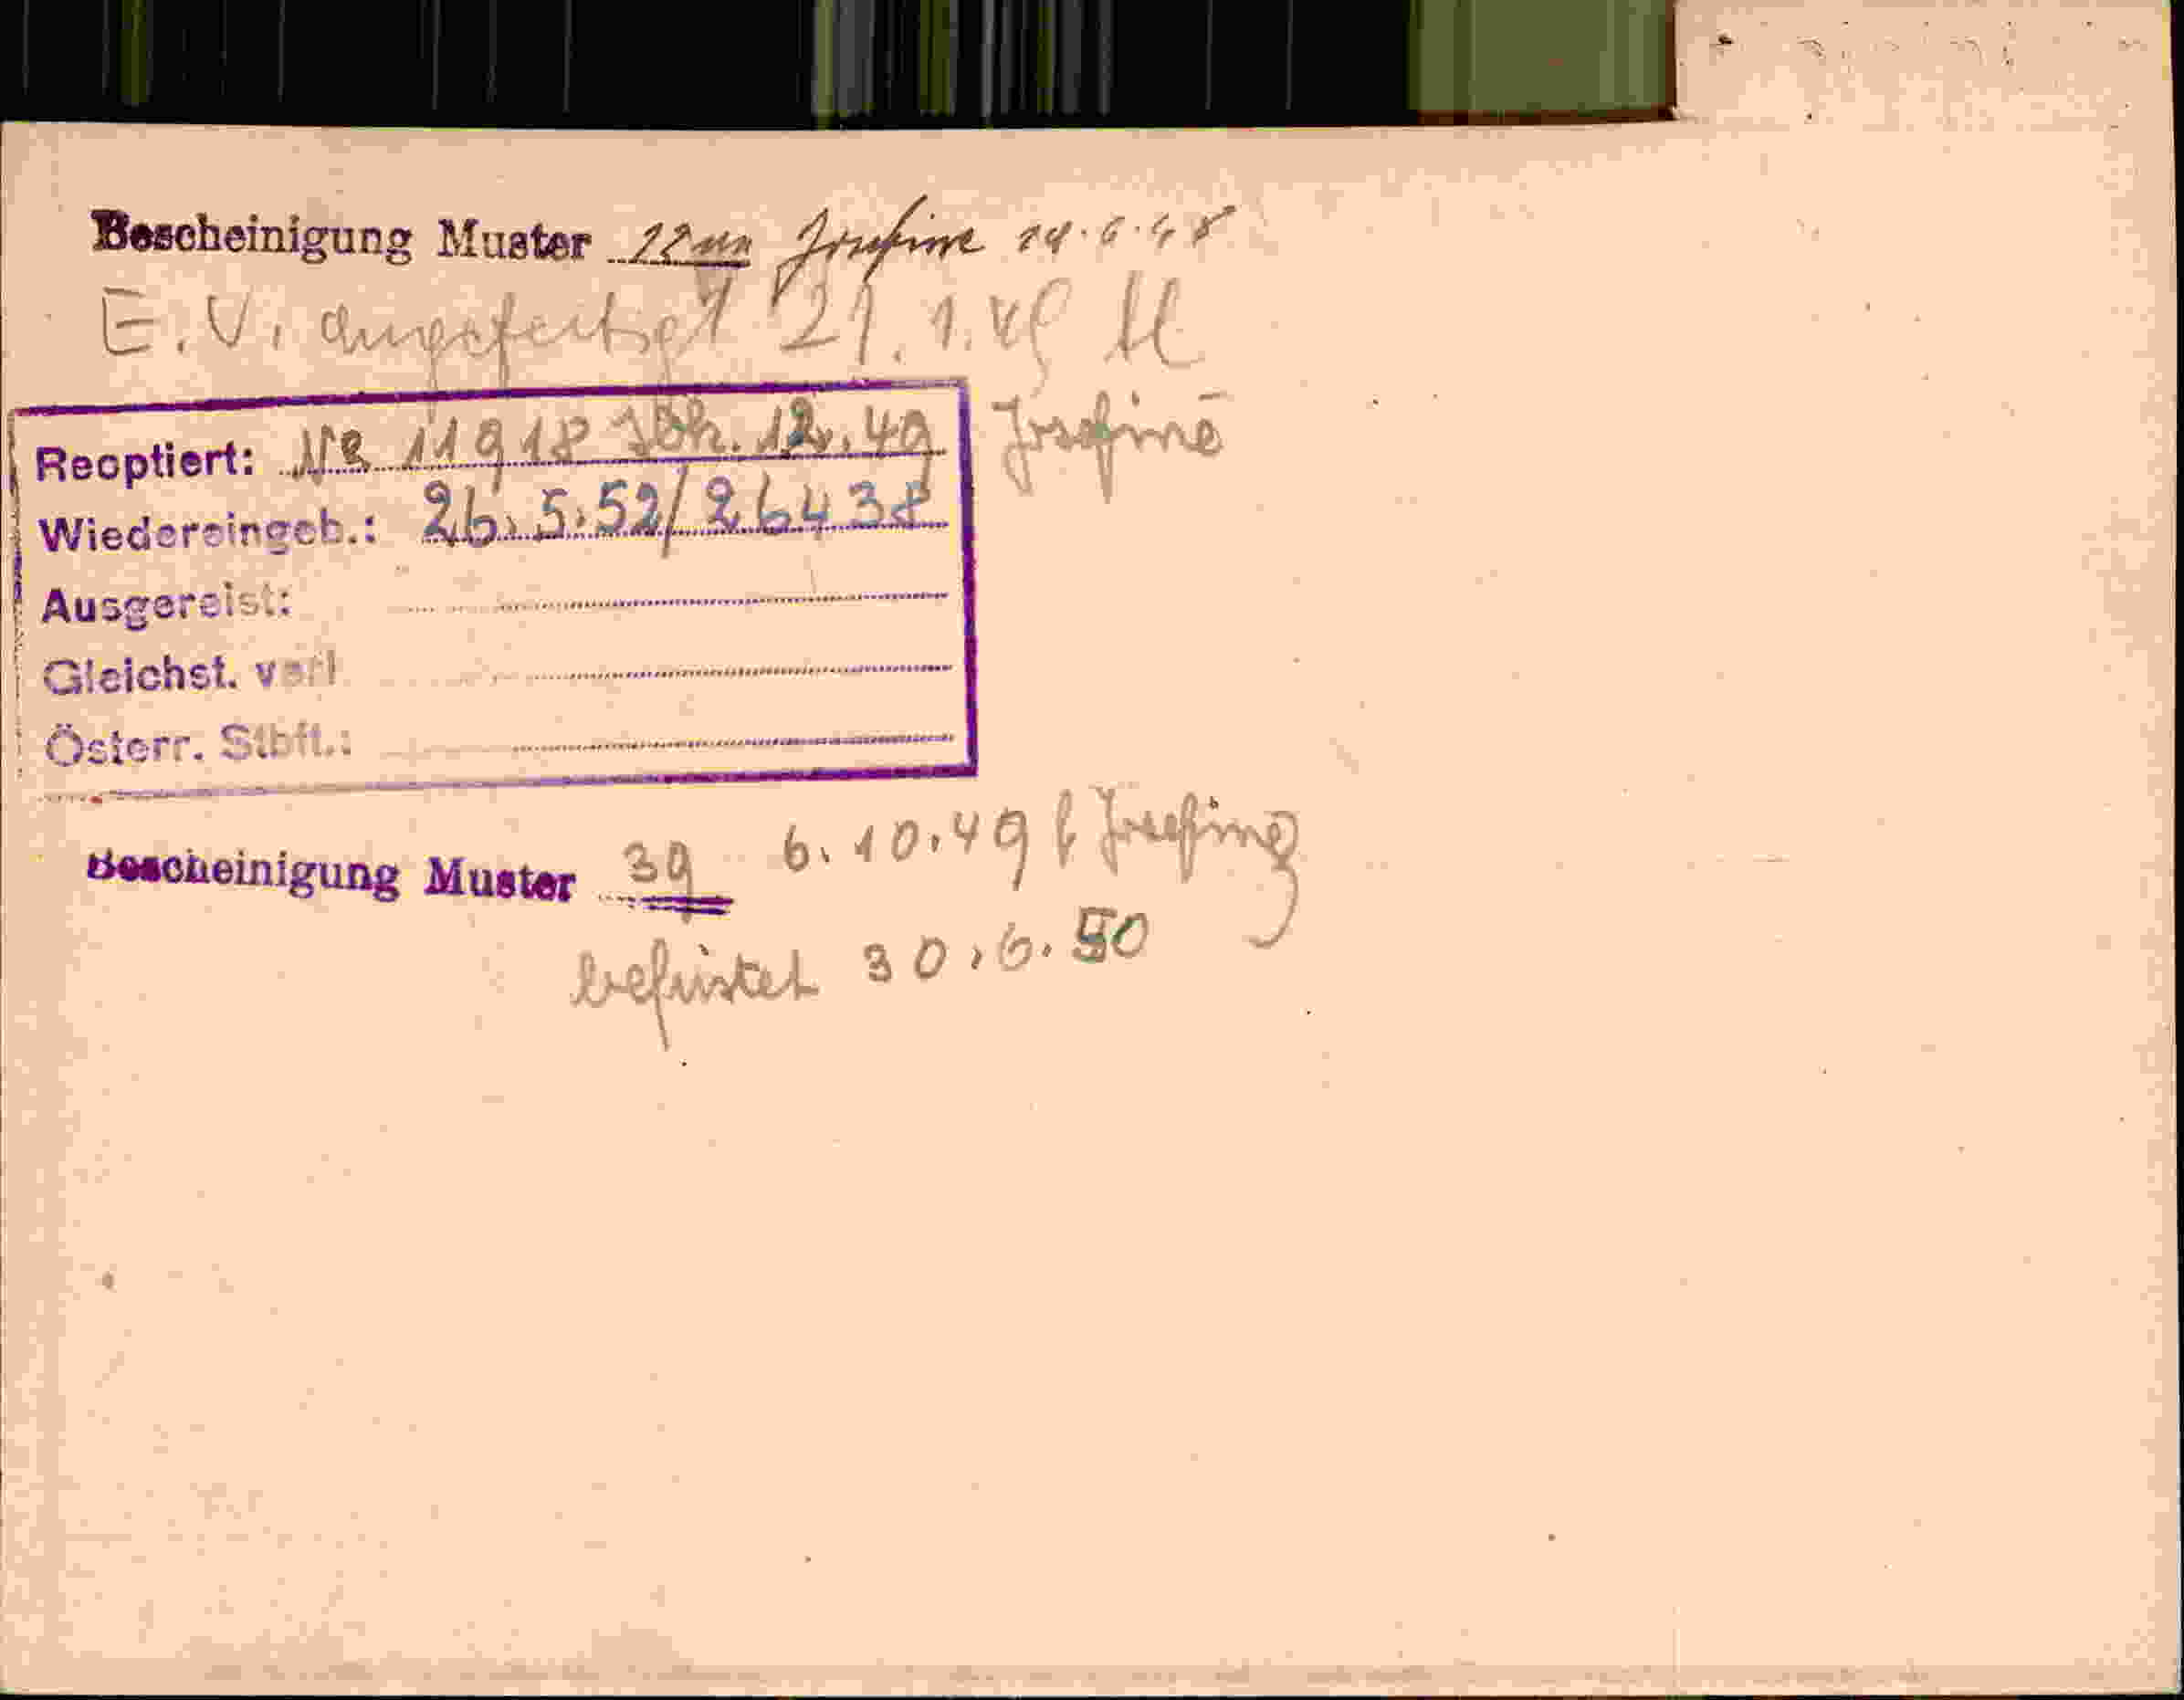 Bescheinigung Muster 22 Josefine 14.6.48
E.V. angefertigt 21.1.49
Josefine
Reoptiert: No 11918 12.49
Wiedereingeb.: 26.5.52/26438
Ausgereist:
Gleichst. verl
Österr. Stbft.:
Bescheinigung Muster 39 6.10.49 f Josefine
befristet 30.6.50